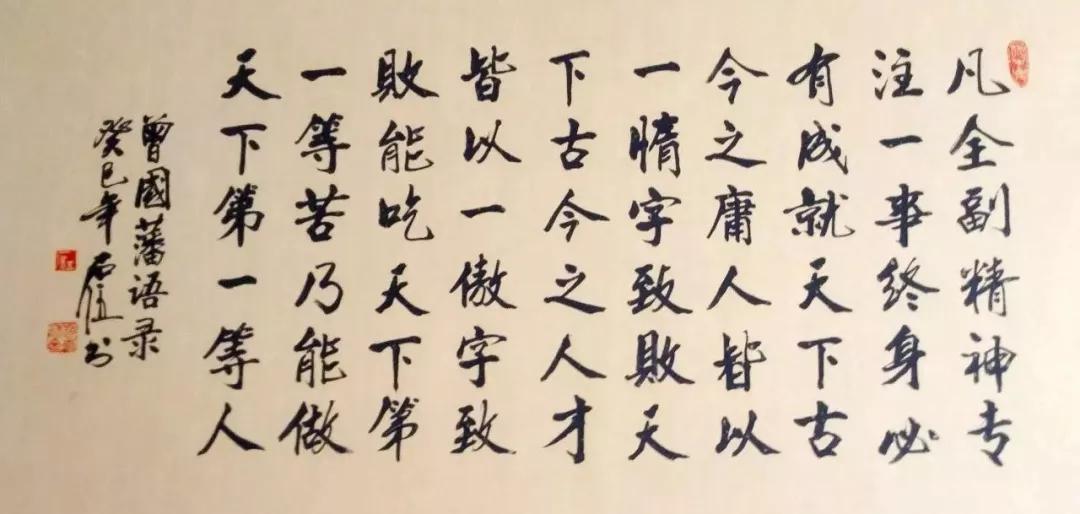 凡全副精神专
注一事终身必
有成就天下古
今之庸人皆以
一惰字致败天
下古今之人才
皆以一傲字致
败能吃天下第
一等苦乃能做
天下第一等人
曾國藩语录
癸巳年 石伍书